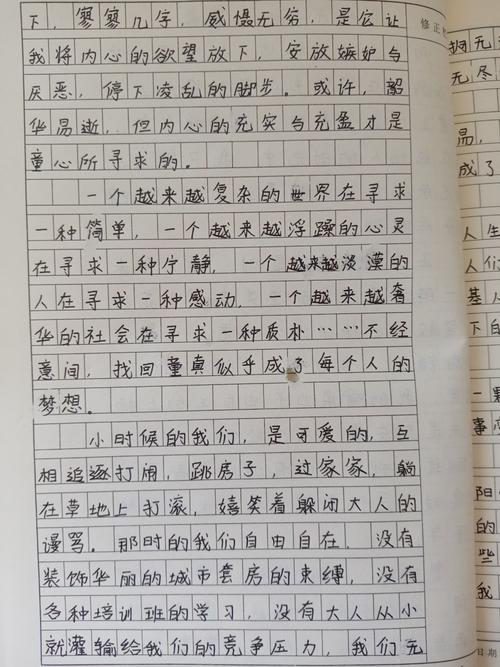 下，寥寥几字，威慑无穷，是它让
我将内心的欲望放下，安放嫉妒与
厌恶，停下凌乱的脚步。或许，韶
华易逝，但内心的充实与充盈才是
童心所寻求的。
一个越来越复杂的世界在寻求
一种简单，一个越来越浮躁的心灵
在寻求一种宁静，一个越来越淡漠的
人在寻求一种感动，一个越来越奢
华的社会在寻求一种质朴……不经
意间，找回童真似乎成了每个人的
梦想。
小时候的我们，是可爱的，互
相追逐打闹，跳房子，过家家，躺
在草地上打滚，嬉笑着躲闭大人的
谩骂。那时的我们自由自在，没有
装饰华丽的城市套房的束缚，没有
各种培训班的学习，没有大人从小
就灌输给我们的竞争压力，我们无
修正
无
无尽
易，
成了
人生
人们
基人
下的
一
事
阳
的
些
我
日期